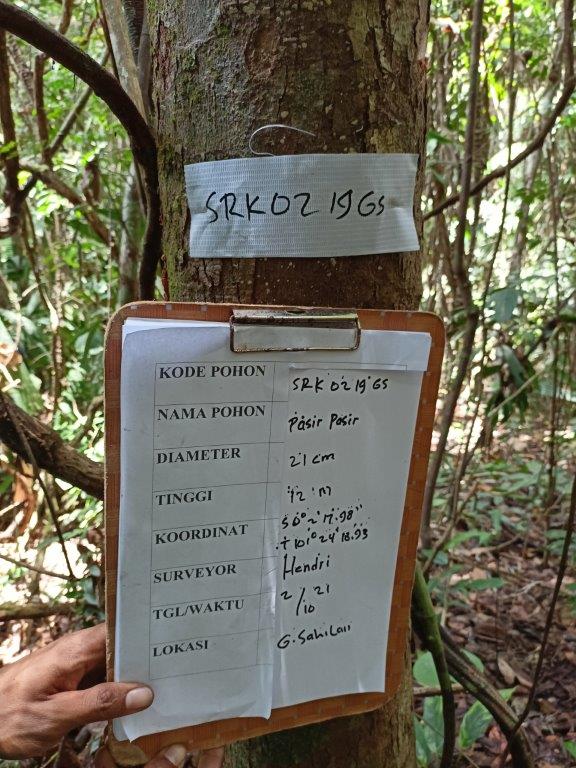 SRK0219GS
KODE POHON SRK0219GS
NAMA POHON Pasir Pasir
DIAMETER 21 cm
TINGGI 12 m
KOORDINAT S 0° 2' 17.98"
+ 101° 24' 18.93
SURVEYOR Hendri
TGL/WAKTU 2/10 21
LOKASI G. Sahilan